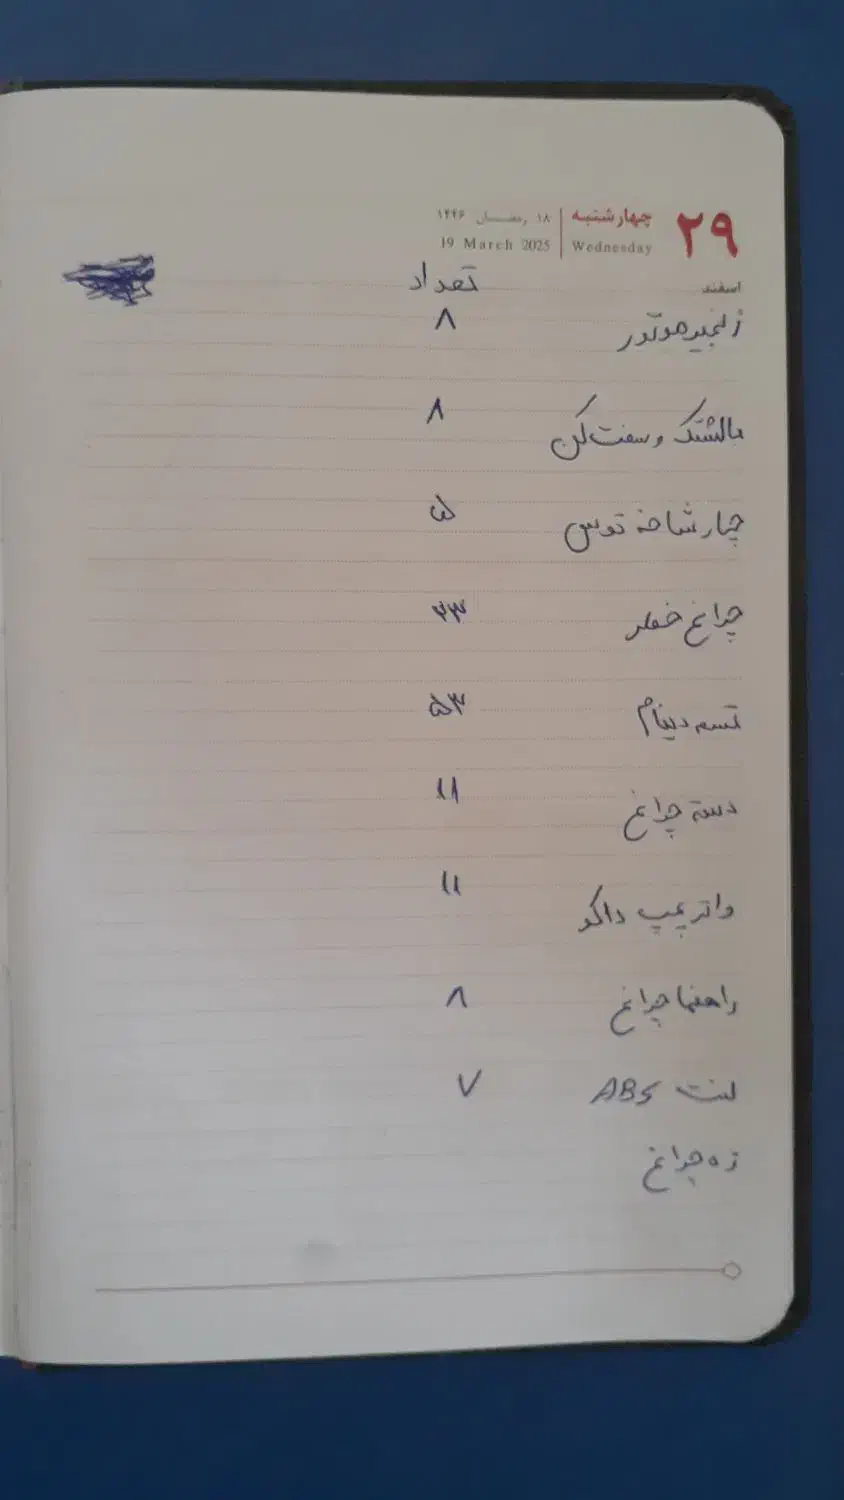 ۲۹ چهارشنبه ۱۸ رمضان ۱۴۴۶
Wednesday 19 March 2025
اسفند
تعداد
زنجیر موتور ۸
بالشتک و سفت کن ۸
چارشاخه توسن ۵
چراغ خطر ۳۳
تسمه دینام ۵۳
دسته چراغ ۱۸
واتر پمپ داکو ۱۱
راهنما چراغ ۸
لنت ABS ۷
زه چراغ